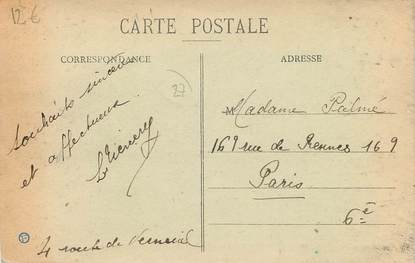 12 €
CARTE POSTALE
CORRESPONDANCE
ADRESSE
27
souhaits sincères
et affectueux
Madame Palmé
169 rue de Rennes 169
Paris
6e
4 route de